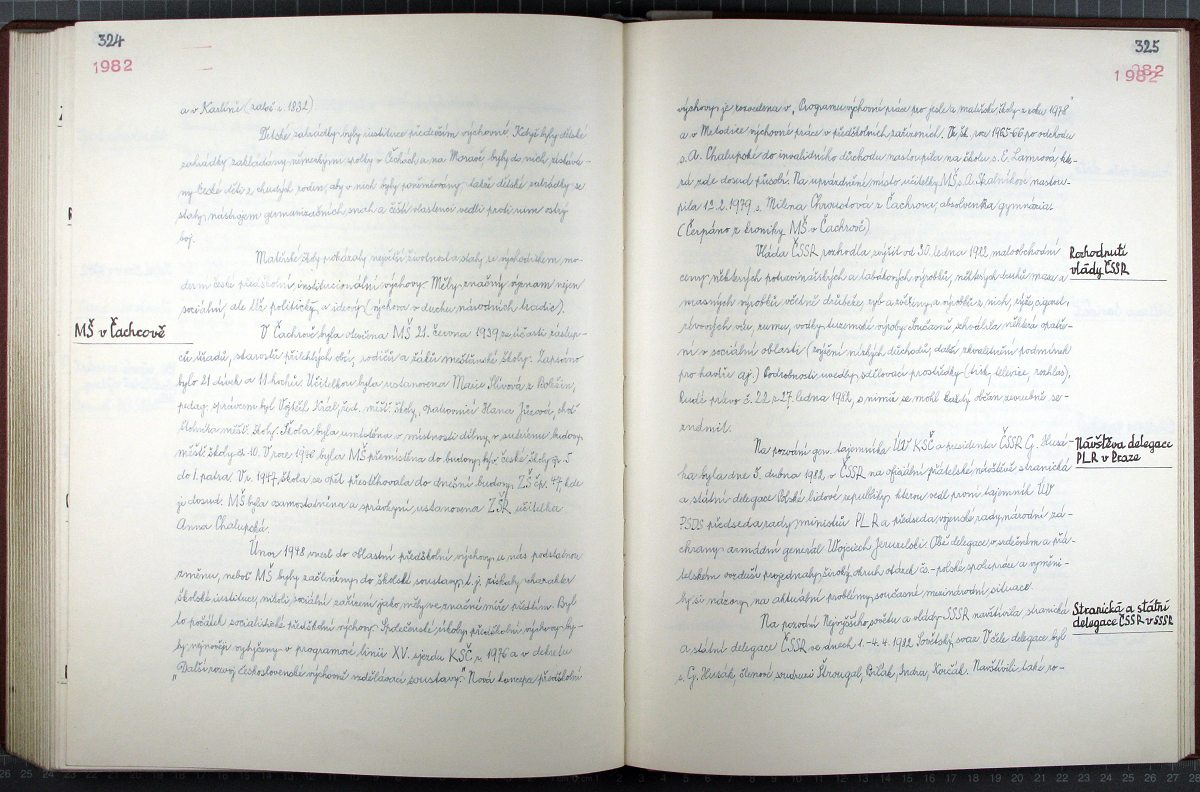 324
1982
a v Karlíně (založ. r. 1832)
Dětské zahrádky byly instituce především výchovné. Když byly dětské
zahrádky zakládány německými spolky v Čechách a na Moravě, byly do nich získává-
ny české děti z chudých rodin, aby v nich byly poněmčovány. také dětské zahrádky se
staly nástrojem germanizačních snah a čeští vlastenci vedli proti nim ostrý
boj.
Mateřské školy prokázaly největší životnost a staly se východiskem mo-
derní české předškolní, institucionální výchovy. Měly značný význam nejen
sociální, ale též politický a ideový (výchova v duchu národních tradic).
MŠ v Čachrově
V Čachrově byla otevřena MŠ 21. června 1939 za účasti zástup-
ců úřadů, starostů přilehlých obcí, rodičů a žáků měšťanské školy. Zapsáno
bylo 21 dívek a 11 hochů. Učitelkou byla ustanovena Marie Slívová z
pedag. správcem byl Vojtěch Král, řed. měšť. školy, opatrovnicí Hana choť
školníka měšť. školy. Škola byla umístěna v místnosti dílny v suterénu budovy
měšť. školy V roce byla MŠ přemístěna do budovy býv. české školy čp. 5
do 1. patra. V r. 1947 škola se opět přestěhovala do dnešní budovy ZŠ čp. 47, kde
je dosud. MŠ byla osamostatněna a správkyní ustanovena ZŠR učitelka
Anna Chalupská.
Únor 1948 vnesl do oblasti předškolní výchovy u nás podstatnou
změnu, neboť MŠ byly začleněny do školské soustavy, t. j. získaly charakter
školské instituce, nikoli sociální zařízení jako měly ve značné míře předtím. Byl
to počátek socialistické předškolní výchovy. Společenské úkoly předškolní výchovy by-
ly nejnověji vytyčeny v programové linii XV. sjezdu KSČ r. 1976 a v dokumentu
„Další rozvoj československé výchovně vzdělávací soustavy." Nová koncepce předškolní
325
1982
výchovy je rozvedena v „Programu výchovné práce pro jesle a mateřské školy z roku 1978"
a v Metodice výchovné práce v předškolních zařízeních. Ve šk. roce 1965-66 po odchodu
s. A. Chalupské do invalidního důchodu nastoupila na školu s. E. Lamrová, kte-
rá zde dosud působí. Na uprázdněné místo učitelky MŠ s. A. Skalníkové nastou-
pila 12. 2. 1979 s. Milena Chroustová z Čachrova, absolventka gymnázia.
(Čerpáno z kroniky MŠ v Čachrově)
Rozhodnutí
vlády ČSSR
Vláda ČSSR rozhodla zvýšit od 30. ledna 1982 maloobchodní
ceny některých potravinářských a tabákových výrobků, některých druhů masa a
masných výrobků včetně drůbeže, ryb a zvěřiny a výrobků z nich, rýže, cigaret,
révových vín, rumu, vodky tuzemské výroby. Současně schválila některá opatře-
ní v sociální oblasti (zvýšení nízkých důchodů, další zkvalitnění podmínek
pro kuřáce aj.) Podrobnosti uvedly sdělovací prostředky (tisk, televize, rozhlas),
Rudé právo č. 22 z 27. ledna 1982, s nimiž se mohl každý občan zevrubně se-
známit.
Návštěva delegace
PLR v Praze
Na pozvání gen. tajemníka ÚV KSČ a presidenta ČSSR G. Husá-
ka byla dne 5. dubna 1982, v ČSSR na oficiální přátelské návštěvě stranická
a státní delegace Polské lidové republiky, kterou vedl první tajemník ÚV
PSDS předseda rady ministrů PLR a předseda vojenské rady národní zá-
chrany armádní generál Wojciech Jeruzelski. Obě delegace v srdečném a přá-
telském ovzduší projednaly široký okruh otázek čs.-polské spolupráce a vyměni-
ly si názory na aktuální problémy současné mezinárodní situace.
Stranická a státní
delegace ČSSR v SSSR
Na pozvání Nejvyššího sovětu a vlády SSSR navštívila stranická
a státní delegace ČSSR ve dnech 1.-4. 4. 1982 Sovětský svaz. V čele delegace byl
s. G. Husák, členové soudruzi Štrougal, Bilak, Indra, Korčák. Navštívili také ro-